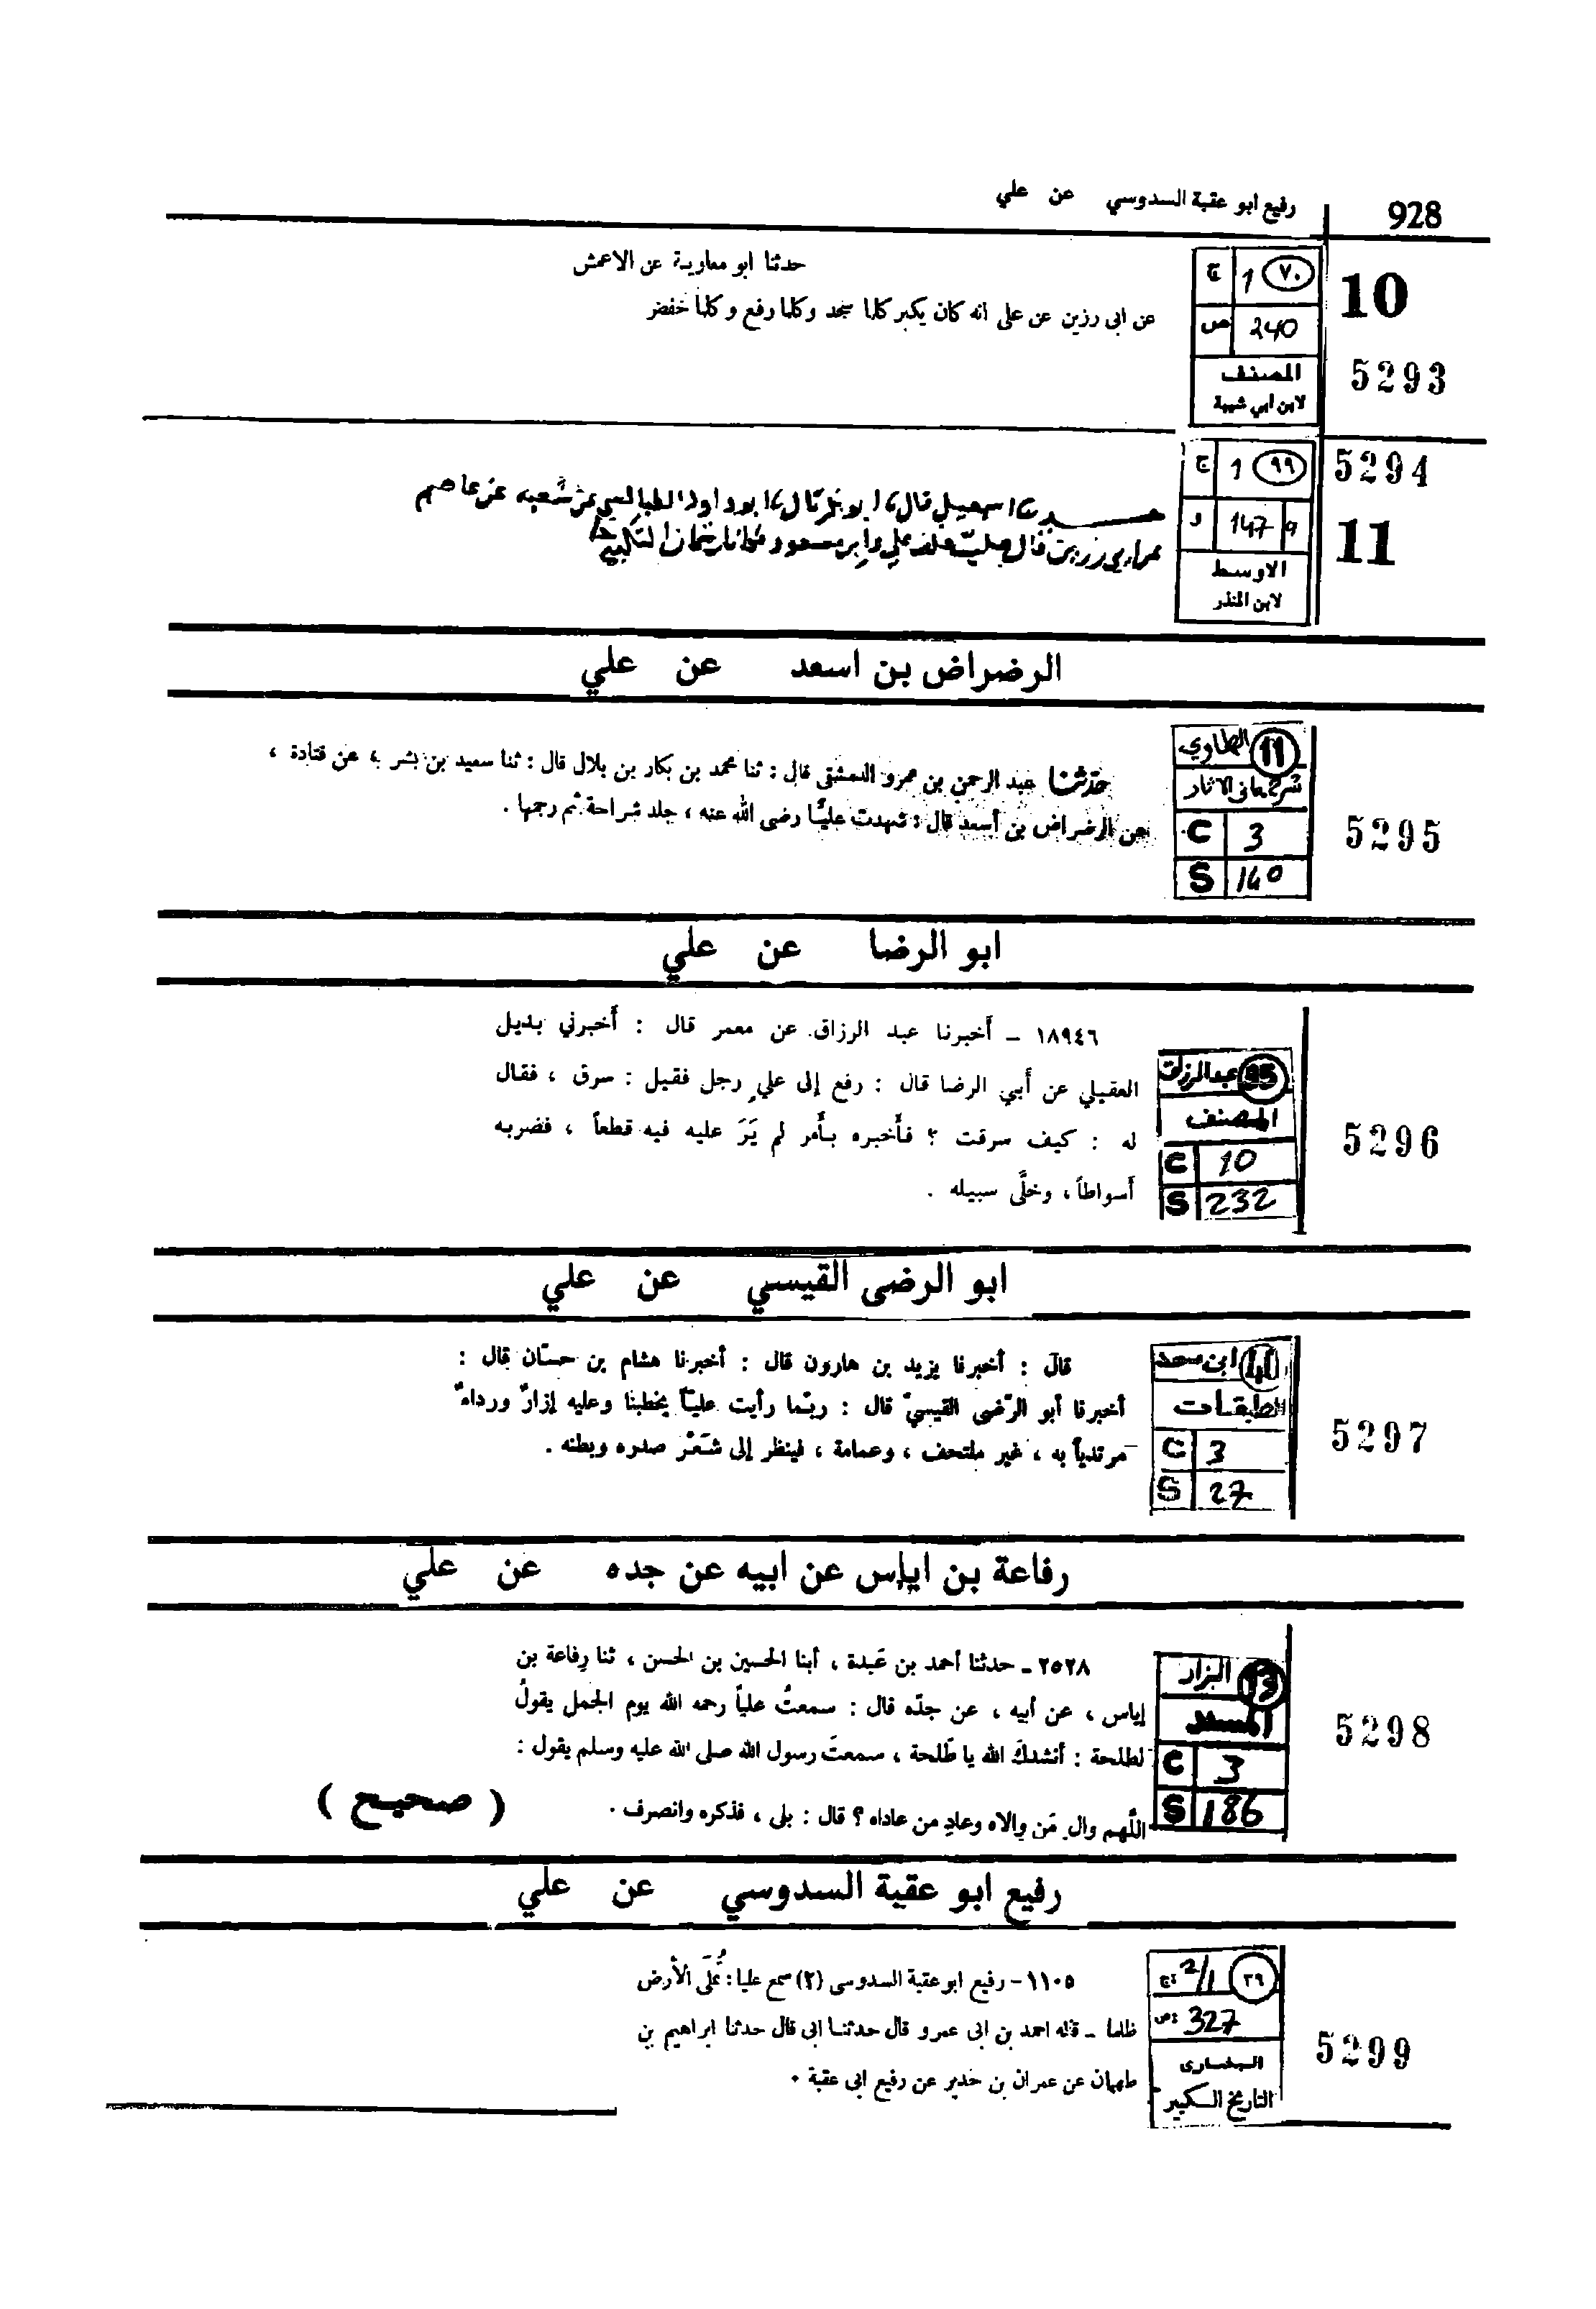 928
رفيع ابو عقبة السدوسي عن علي
10
ج 1 ٧٠
ص 240
المصنف
لابن ابي شيبة
5293
حدثنا ابو معاوية عن الاعمش
عن ابى رزين عن على انه كان يكبر كلما سجد وكلما رفع وكلما خفض
5294
11
ج 1 ٩٩
و 147 a
الاوسط
لابن المنذر
اسمعيل قال ابو بكر قال ابو داود الطيالسي عن شعبه عن عاصم
عن ابي رزين قال صليت خلف علي وابن مسعود فكانا يتمان التكبير
الرضراض بن اسعد عن علي
11 الطحاوي
شرح معاني الاثار
C 3
S 140
5295
حدثنا عبد الرحمن بن عمرو الدمشقى قال : ثنا محمد بن بكار بن بلال قال : ثنا سعيد بن بشر ، عن قتادة ،
عن الرضراض بن أسعد قال : شهدت عليًّا رضى الله عنه ، جلد شراحة ثم رجمها .
ابو الرضا عن علي
عبد الرزاق
المصنف
C 10
S 232
5296
١٨٩٤٦ – أخبرنا عبد الرزاق عن معمر قال : أخبرني بديل
العقيلي عن أبي الرضا قال : رفع إلى علي رجل فقيل : سرق ، فقال
له : كيف سرقت ؟ فأخبره بأمر لم يَرَ عليه فيه قطعاً ، فضربه
أسواطاً ، وخلَّى سبيله .
ابو الرضى القيسي عن علي
40 ابن سعد
الطبقات
C 3
S 27
5297
قال : أخبرنا يزيد بن هارون قال : أخبرنا هشام بن حسّان قال :
أخبرنا أبو الرّضى القيسيّ قال : ربّما رأيت عليّاً يخطبنا وعليه إزارٌ ورداءٌ
مرتدياً به ، غير ملتحف ، وعمامة ، فينظر إلى شَعَرْ صدره وبطنه .
رفاعة بن اياس عن ابيه عن جده عن علي
13 البزار
المسند
C 3
S 186
5298
٢٥٢٨ – حدثنا أحمد بن عَبدة ، أبنا الحسين بن الحسن ، ثنا رِفاعة بن
إياس ، عن أبيه ، عن جدّه قال : سمعتُ علياً رحمه الله يوم الجمل يقولُ
لطلحة : أنشدكَ الله يا طَلحة ، سمعتَ رسول الله صلى الله عليه وسلم يقول :
اللّهم والِ مَن والاه وعادِ من عاداه ؟ قال : بلى ، فذكره وانصرف .
( صحيح )
رفيع ابو عقبة السدوسي عن علي
٣٩ ج: 2/1
ص: 327
البخارى
التاريخ الكبير
5299
١١٠٥ – رفيع ابو عقبة السدوسى (٢) سمع عليا : تُملَى الأرض
ظلما – قاله احمد بن ابى عمرو قال حدثنا ابى قال حدثنا ابراهيم بن
طهمان عن عمران بن حدير عن رفيع ابى عقبة .